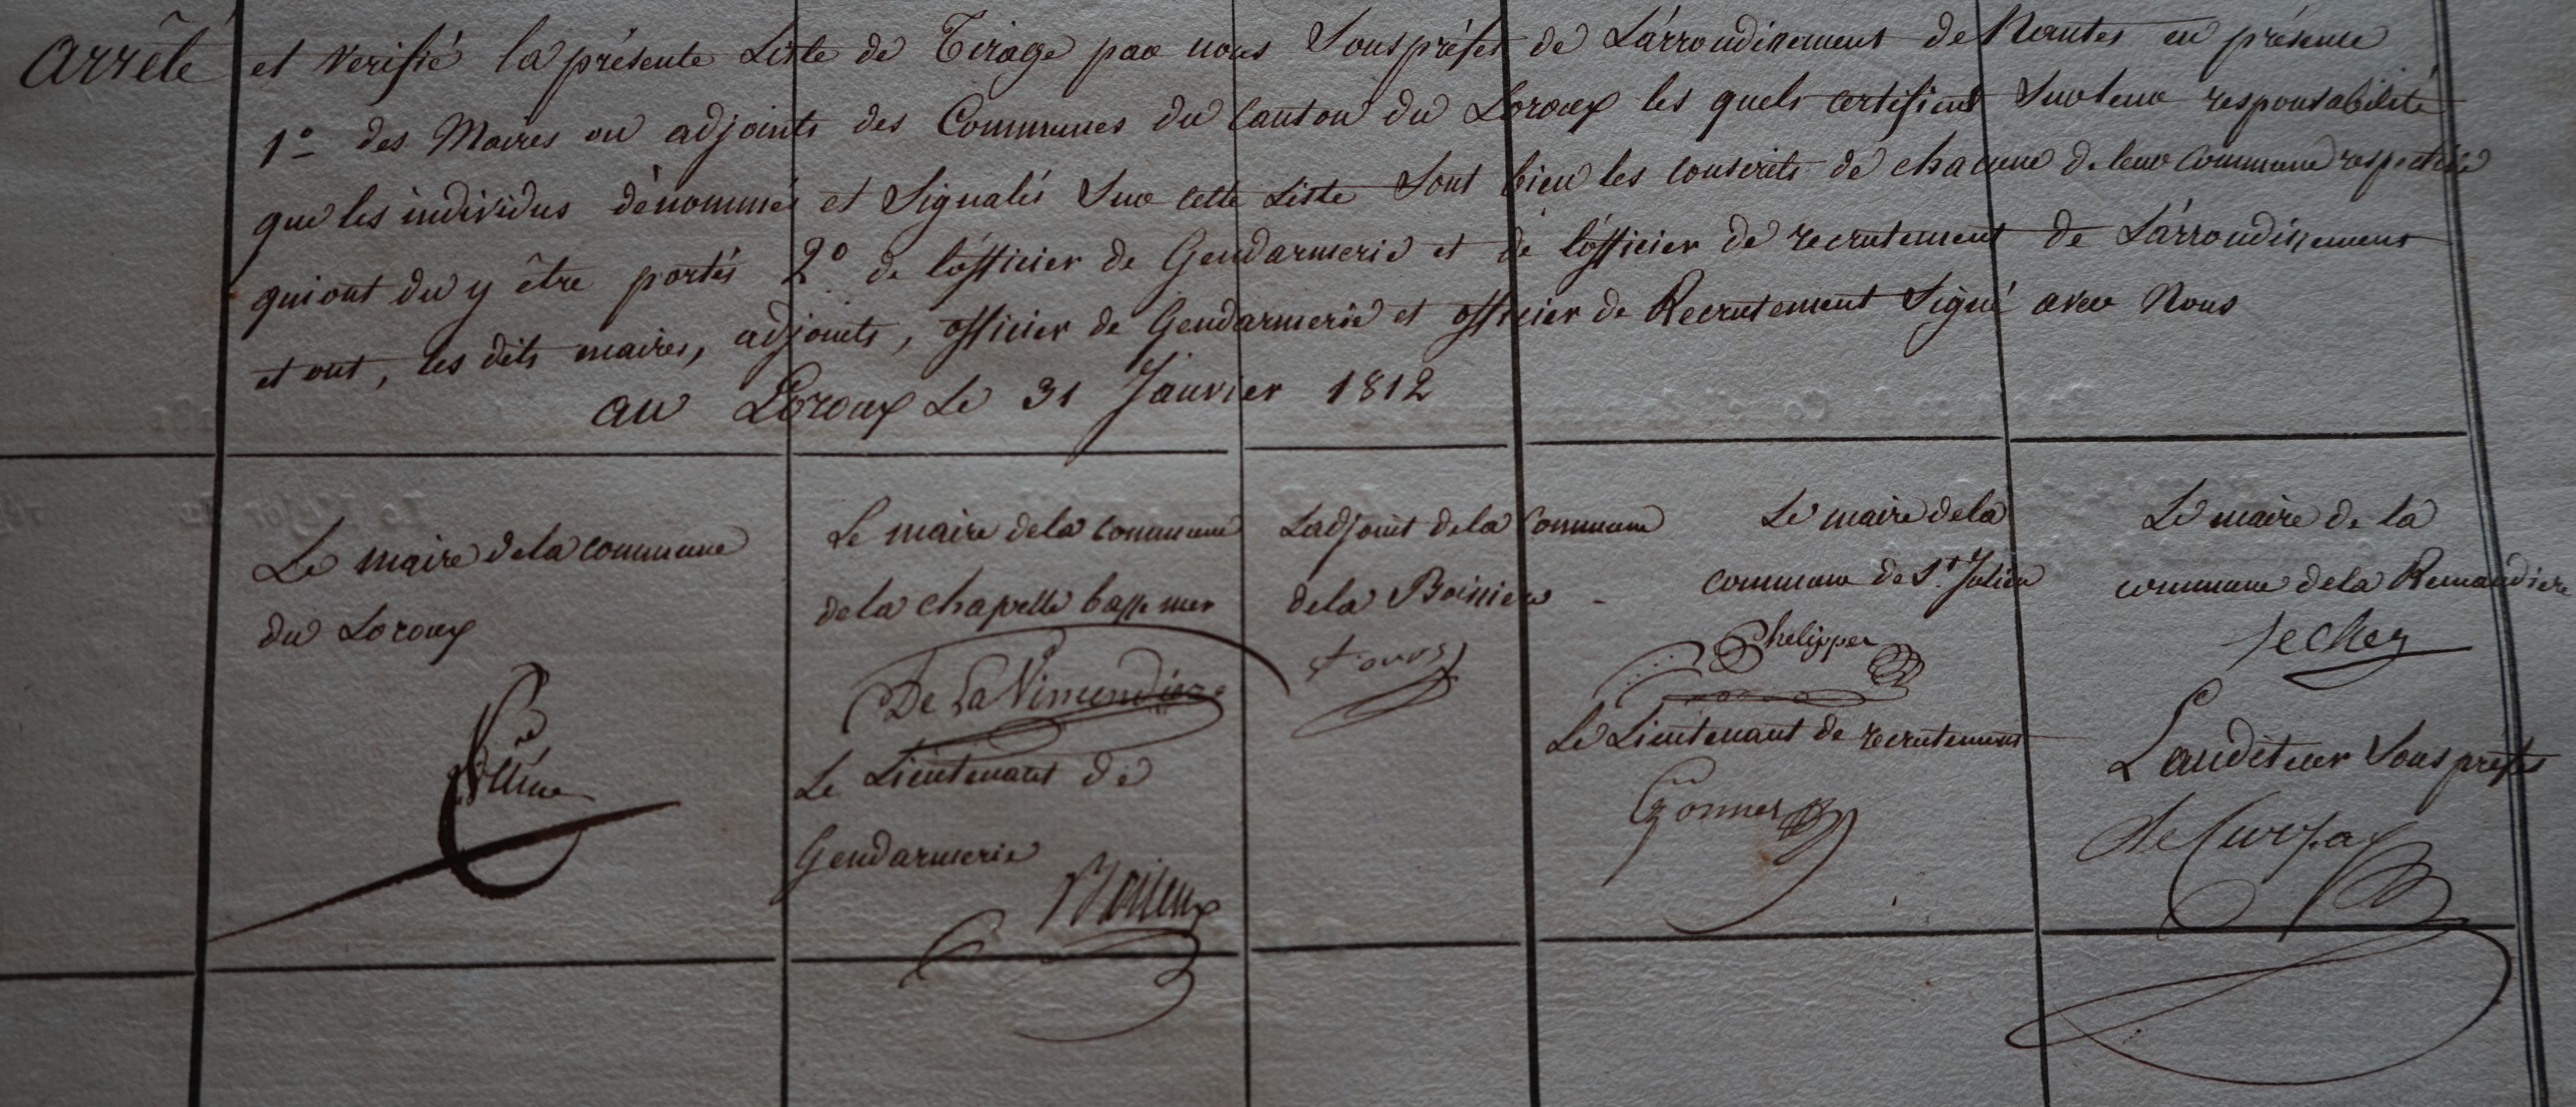 Arrêté et verifié la présente Liste de Tirage par nous Souspréfet de L'arrondissement de Nantes en présence
1º des Maires ou adjoints des Communes du Canton du Loroux les quels certifient Sur leur responsabilité
que les individus dénommés et Signalés Sur cette Liste Sont bien les conscrits de chacune de leur commune respective
qui ont du y être portés 2º de l'officier de Gendarmerie et de l'officier de recrutement de L'arrondissement
et ont, les dits maires, adjoints, officier de Gendarmerie et officier de Recrutement Signé avec Nous
au Loroux Le 31 Janvier 1812
Le maire de la commune
du Loroux
Le maire de la commune
de la chapelle basse mer
De La
Le Lieutenant de
Gendarmerie
Ladjoint de la Commune
de la Boissiere
Le maire de la
commune de St Julien
Phelippes
Le Lieutenant de recrutement
Le maire de la
commune de la Remaudiere
Lauditeur Sous prefet
de Curzay